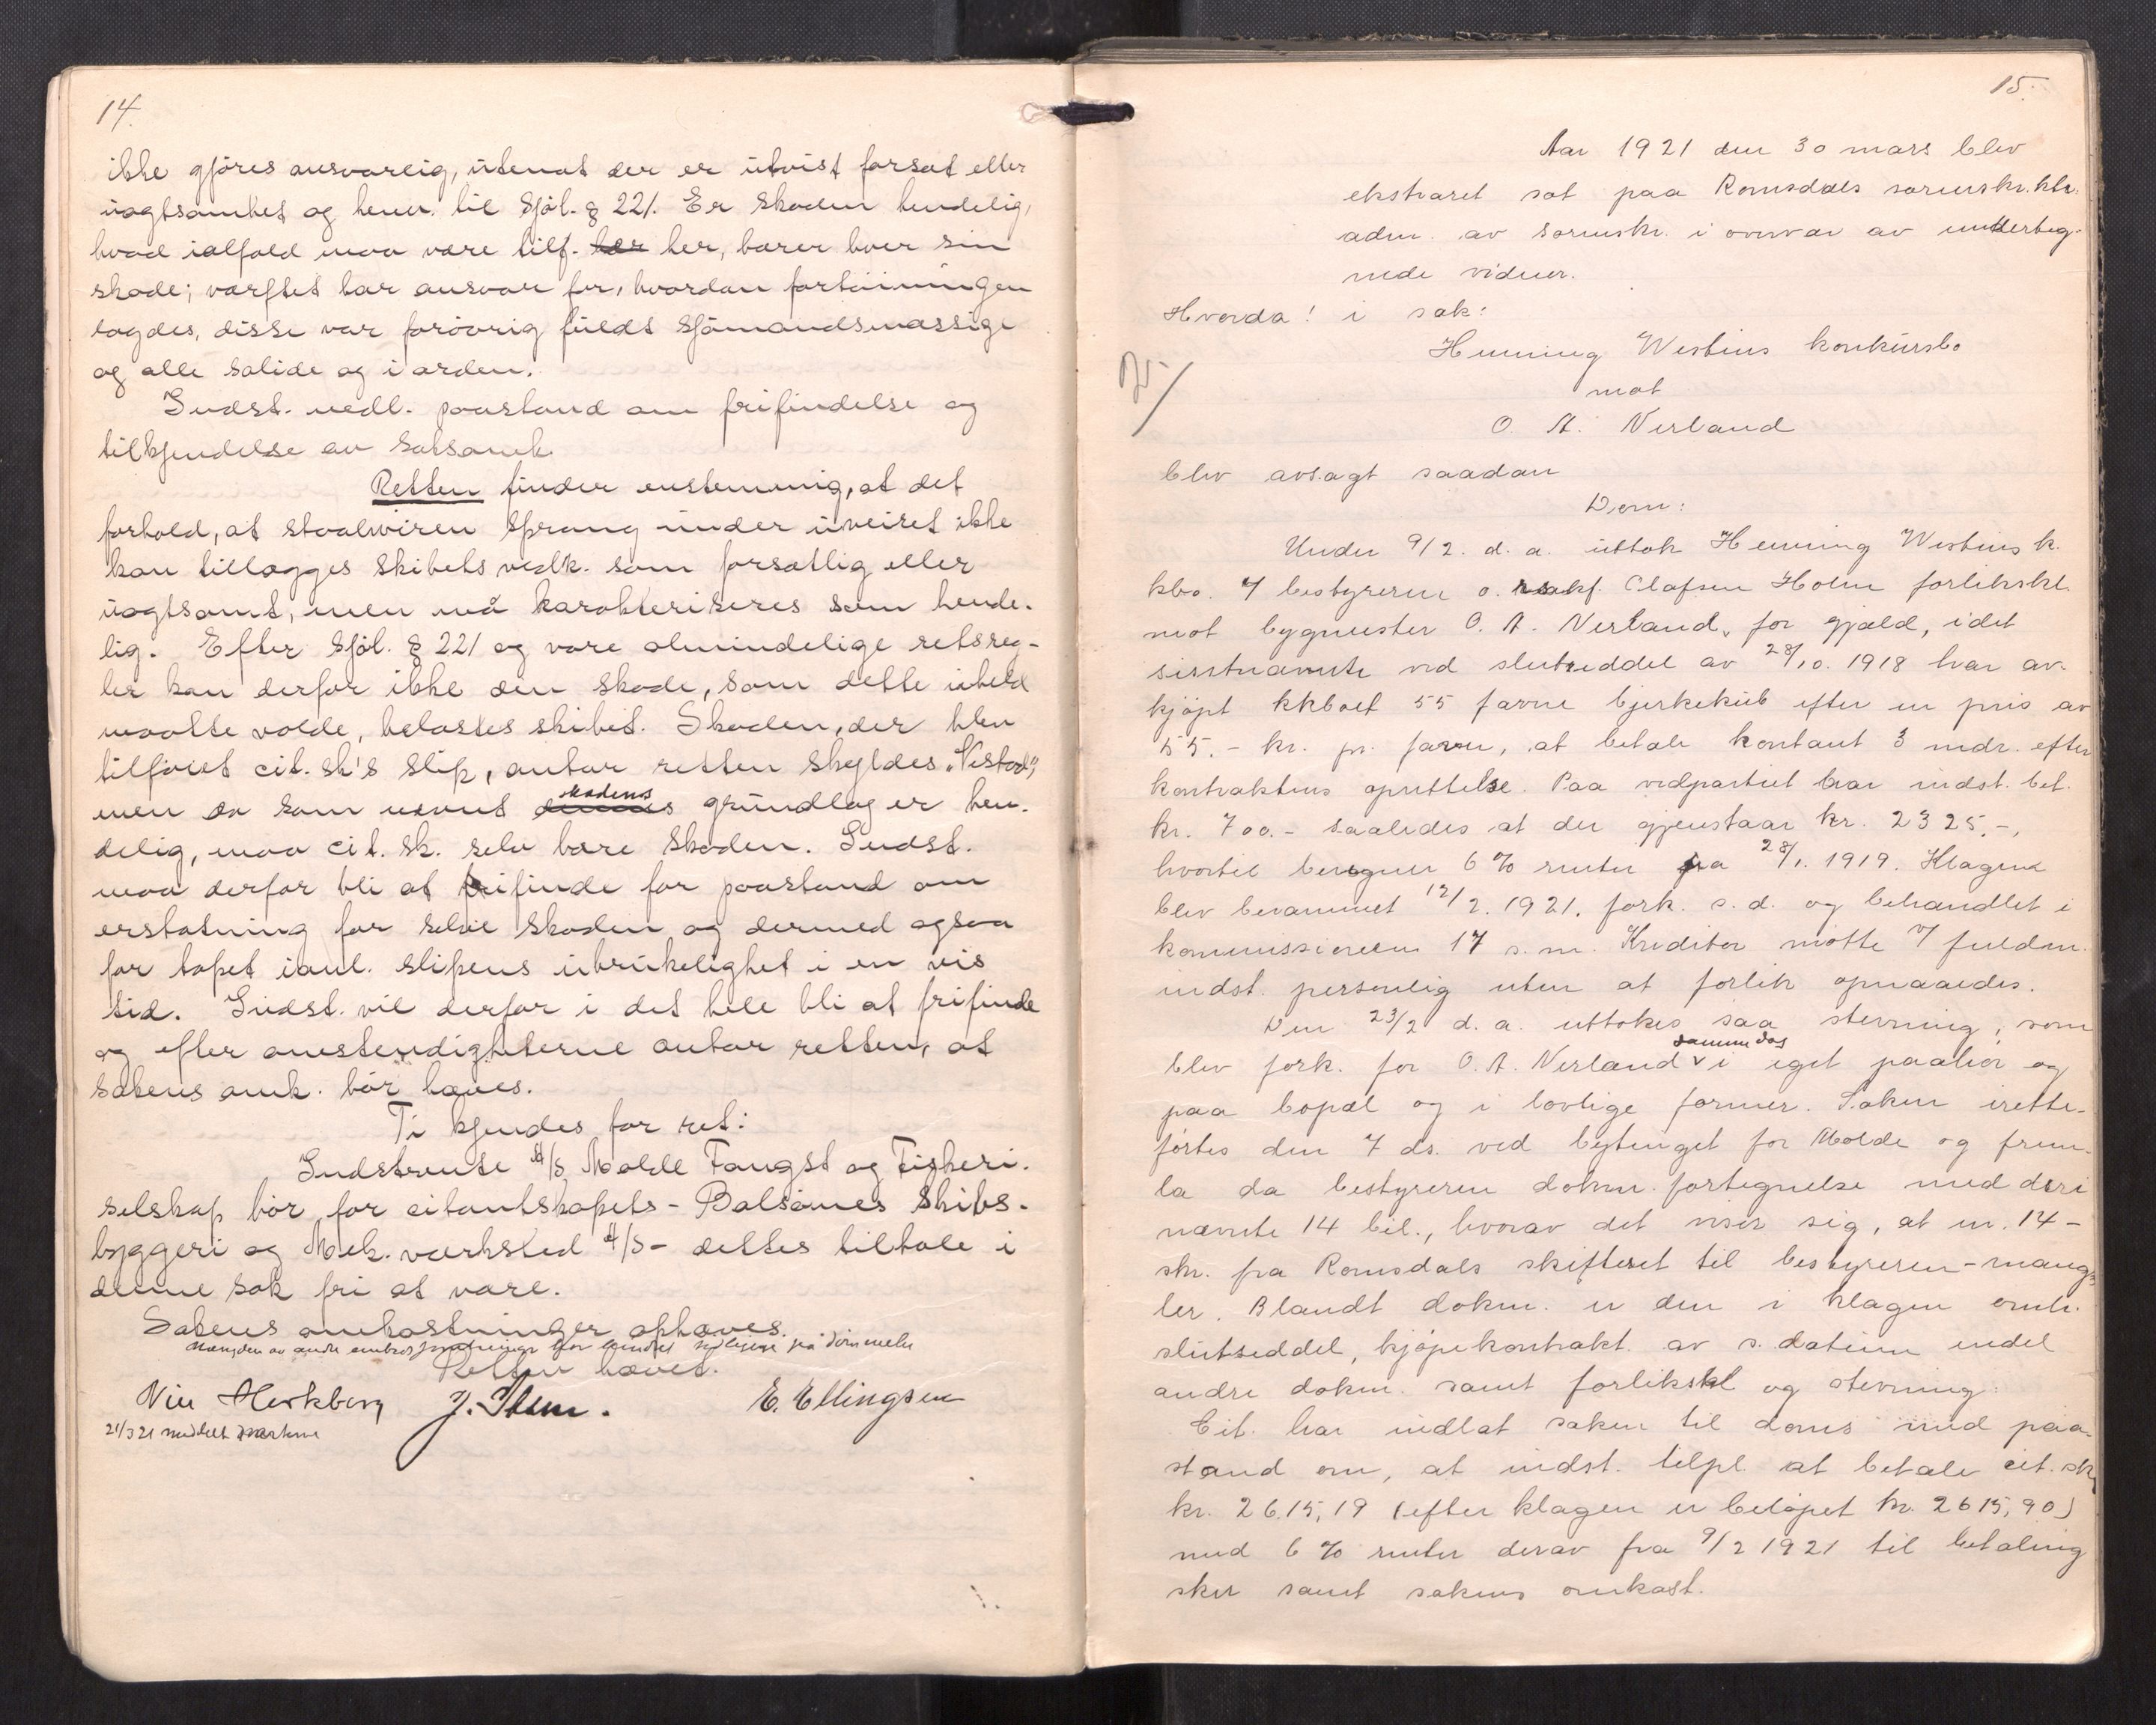 14.
ikke gjöres ansvarlig, utenat der er utvist forsæt eller
uagtsomhet og henv. til Sjöl. § 221. Er skaden hendelig,
hvad ialfald maa være tilf. her her, bærer hver sin
skade; værftet bar ansvar for, hvordan fortöiningen
lagdes, disse var forövrig fuldt sjömandsmæssige
og alle solide og i orden.
Indst. nedl. paastand om frifindelse og
tilkjendelse av saksomk.
Retten finder enstemmig, at det
forhold, at staalwiren sprang under uveiret ikke
kan tillægges skibets vedk. som forsætlig eller
uagtsomt, men må karakteriseres som hende-
lig. Efter Sjöl. § 221 og vore almindelige retsreg-
ler kan derfor ikke den skade, som dette uheld
maatte volde, belastes skibet. Skaden, der blev
tilföiet cit. sk's slip, antar retten skyldes „Vestad",
men da som nævnt skadens grundlag er hen-
delig, maa cit. sk. selv bære skaden. Indst.
maa derfor bli at frifinde for paastand om
erstatning for selve skaden og dermed ogsaa
for tapet i anl. slipens ubrukelighet i en vis
tid. Indst. vil derfor i det hele bli at frifinde
og efter omstendighterne antar retten, at
sakens omk. bör hæves.
Ti kjendes for ret:
Indstevnte A/S Molde Fangst og Fiskeri-
selskap bör for citantskapets - Bolsönes Skibs-
byggeri og Mek. værksted A/S - dettes tiltale i
denne sak fri at være.
Sakens omkostninger ophæves.
Mængden av andre embedsforretninger har hindret
Retten hævet.
J. Stem. E. Ellingsen
21/3 21 meddelt parterne
15.
Aar 1921 den 30 mars blev
ekstraret sat paa Romsdals sorenskr.ktr.
adm. av sorenskr. i overvær av underteg-
nede vidner.
Hvorda! i sak:
Henning Westins konkursbo
mot
O. A. Nerland
blev avsagt saadan
Dom:
Under 9/2. d. a. uttok Henning Westins k.
kbo. v/ bestyreren o. rsakf. Olafsen Holm forlikskl.
mot bygmester O. A. Nerland, for gjæld, idet
sisstnævnte ved slutseddel av 28/10. 1918 har av-
kjöpt kkboet 55 favne bjerkekub efter en pris av
55.- kr. pr. favn, at betale kontant 3 mdr. efter
kontraktens oprettelse. Paa vedpartiet har indst. bet.
kr. 700.- saaledes at der gjenstaar kr. 2325.-,
hvortil beregnes 6 % renter fra 28/1. 1919. Klagen
blev berammet 12/2. 1921. fork. s. d. og behandlet i
kommissionen 17 s. m. Kreditor mötte v/ fuldm.
indst. personlig uten at forlik opnaaedes.
Den 23/2 d. a. uttokes saa stevning, som
blev fork. for O. A. Nerland samme dag i eget paahör og
paa bopæl og i lovlige former. Saken irette-
förtes den 7 ds. ved bytinget for Molde og frem-
la da bestyreren dokm. fortegnelse med deri
nævnte 14 bil., hvorav det viser sig, at nr. 14 -
skr. fra Romsdals skifteret til bestyreren - mang-
ler. Blandt dokm. er den i klagen omh.
slutseddel, kjöpekontrakt av s. datum endel
andre dokm. samt forlikskl og stevning.
Cit. har indlat saken til doms med paa-
stand om, at indst. tilpl. at betale cit. sk
kr. 2615,19 (efter klagen er belöpet kr. 2615,90)
med 6 % renter derav fra 9/2 1921 til betaling
sker samt sakens omkost.